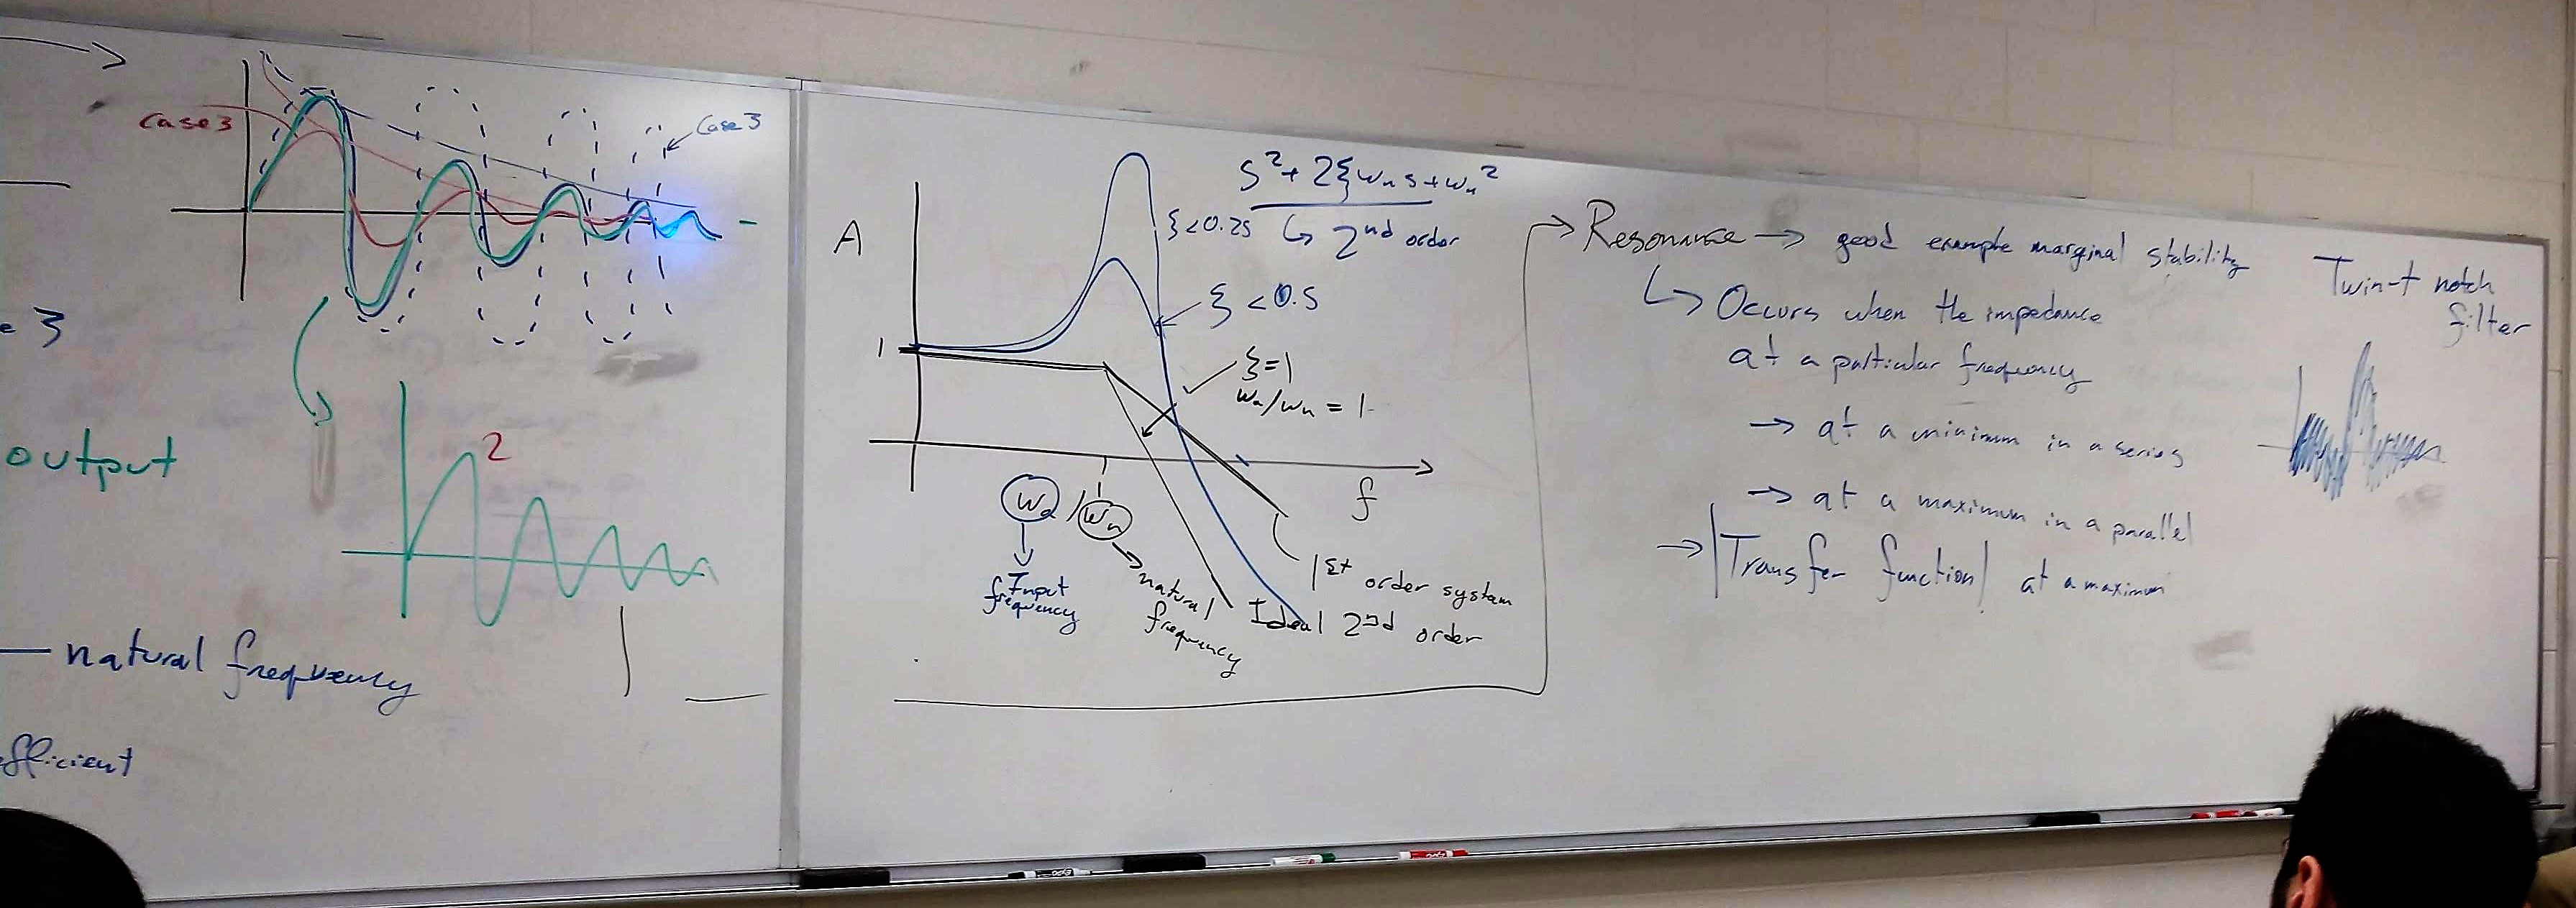 Case 3
Case 3
e 3
output
2
natural frequency
efficient
A
1
S² + 2ξωₙs + ωₙ²
↳ 2nd order
ξ<0.25
ξ <0.5
ξ=1
ωₐ/ωₙ = 1
f
ωₐ / ωₙ
Input
frequency
natural
frequency
1st order system
Ideal 2nd order
Resonance → good example marginal stability
↳ Occurs when the impedance
at a particular frequency
→ at a minimum in a series
→ at a maximum in a parallel
→ |Transfer function| at a maximum
Twin-t notch
filter